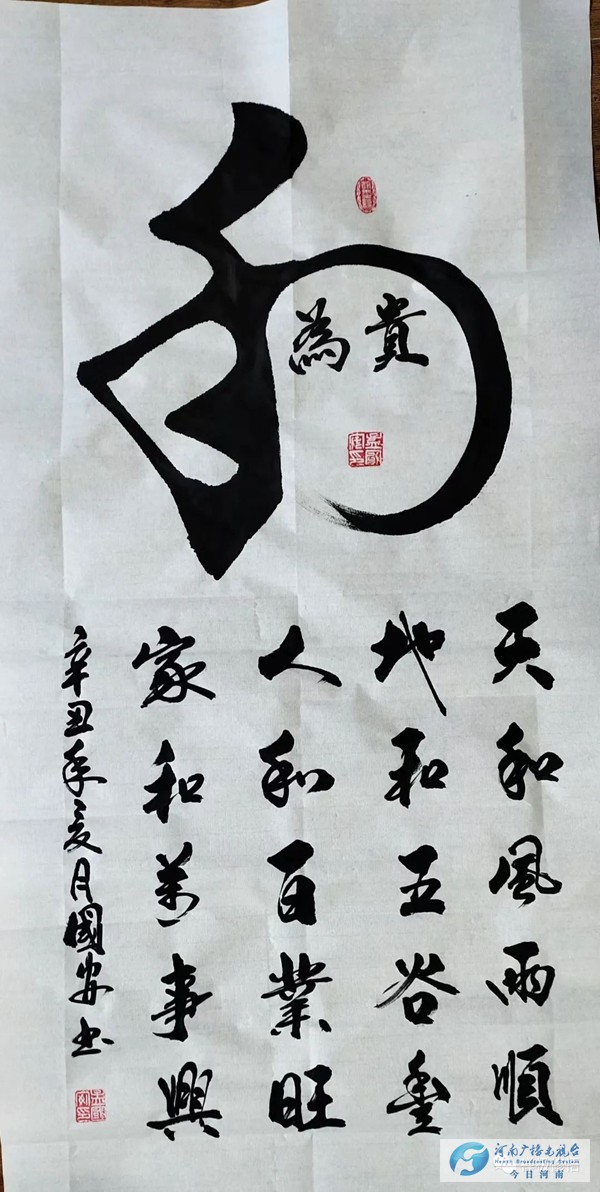 和
為貴
天和風雨順
地和五谷豊
人和百業旺
家和萬事興
辛丑年亥月國安书
河南广播电视台
Henan Broadcasting System
今日河南